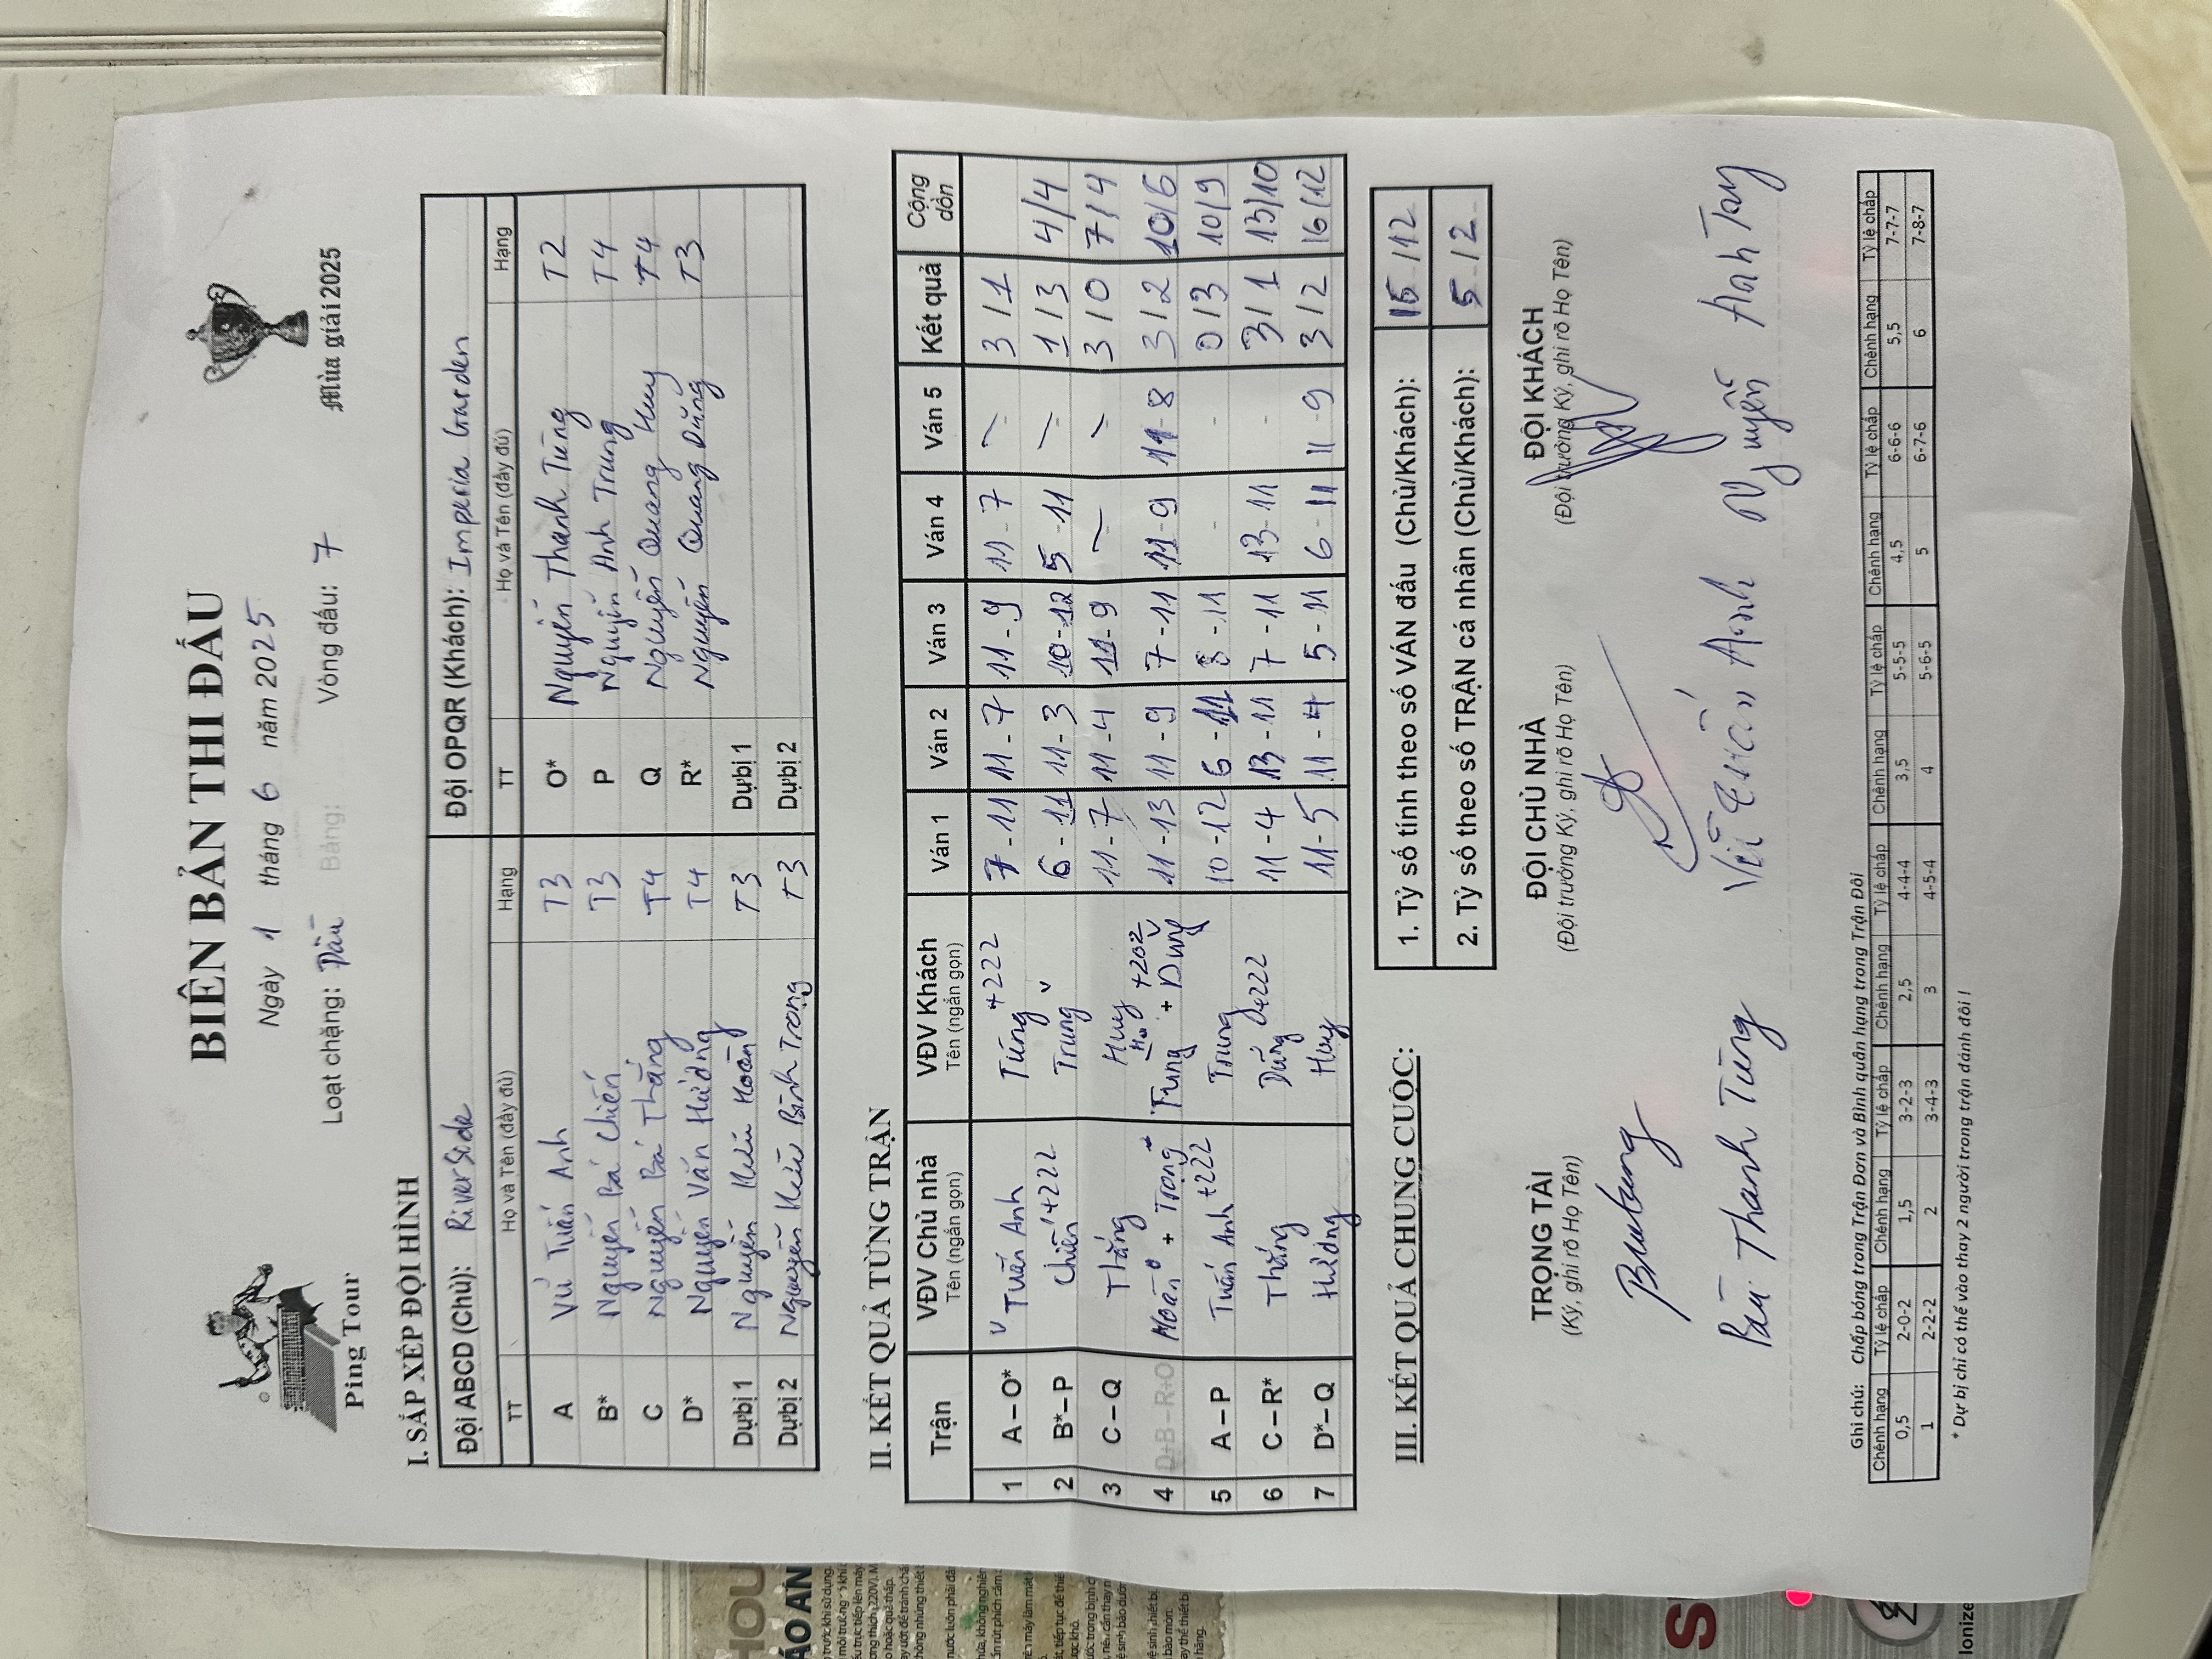 BIÊN BẢN THI ĐẤU
Ngày 1 tháng 6 năm 2025
Ping Tour
Loạt chặng: Bảng: Vòng đấu: 7
Mùa giải 2025
I. SẮP XẾP ĐỘI HÌNH
Đội ABCD (Chủ): RiverSide Đội OPQR (Khách): Imperia Garden
TT Họ và Tên (đầy đủ) Hạng TT Họ và Tên (đầy đủ) Hạng
A Vũ Tuấn Anh T3 O* Nguyễn Thanh Tùng T2
B* Nguyễn Bá Chiến T3 P Nguyễn Anh Trung T4
C Nguyễn Bá Thắng T4 Q Nguyễn Quang Huy T4
D* Nguyễn Văn Hường T4 R* Nguyễn Quang Dũng T3
Dự bị 1 Nguyễn Hữu Hoàn T3 Dự bị 1
Dự bị 2 Nguyễn Hữu Bình Trọng T3 Dự bị 2
II. KẾT QUẢ TỪNG TRẬN
Trận VĐV Chủ nhà Tên (ngắn gọn) VĐV Khách Tên (ngắn gọn) Ván 1 Ván 2 Ván 3 Ván 4 Ván 5 Kết quả Cộng dồn
1 A – O* Tuấn Anh Tùng +222 7 - 11 11 - 7 11 - 9 11 - 7 - 3 / 1
2 B* – P Chiến +222 Trung 6 - 11 11 - 3 10 - 12 5 - 11 - 1 / 3 4/4
3 C – Q Thắng Huy 11 - 7 11 - 4 11 - 9 - - 3 / 0 7/4
4 D+B – R+O Hoàn + Trọng Trung + Dũng +202 11 - 13 11 - 9 7 - 11 11 - 9 11 - 8 3 / 2 10/6
5 A – P Tuấn Anh +222 Trung 10 - 12 6 - 11 8 - 11 - - 0 / 3 10/9
6 C – R* Thắng Dũng +222 11 - 4 13 - 11 7 - 11 13 - 11 - 3 / 1 13/10
7 D* – Q Hường Huy 11 - 5 11 - 4 5 - 11 6 - 11 11 - 9 3 / 2 16/12
III. KẾT QUẢ CHUNG CUỘC:
1. Tỷ số tính theo số VÁN đấu (Chủ/Khách): 16/12
2. Tỷ số theo số TRẬN cá nhân (Chủ/Khách): 5/2
TRỌNG TÀI ĐỘI CHỦ NHÀ ĐỘI KHÁCH
(Ký, ghi rõ Họ Tên) (Đội trưởng Ký, ghi rõ Họ Tên) (Đội trưởng Ký, ghi rõ Họ Tên)
Bùi Thanh Tùng Vũ Tuấn Anh Nguyễn Anh Tay
Ghi chú: Chấp bóng trong Trận Đơn và Bình quân hạng trong Trận Đôi
Chênh hạng Tỷ lệ chấp Chênh hạng Tỷ lệ chấp Chênh hạng Tỷ lệ chấp Chênh hạng Tỷ lệ chấp Chênh hạng Tỷ lệ chấp Chênh hạng Tỷ lệ chấp
0,5 2-0-2 1,5 3-2-3 2,5 4-4-4 3,5 5-5-5 4,5 6-6-6 5,5 7-7-7
1 2-2-2 2 3-4-3 3 4-5-4 4 5-6-5 5 6-7-6 6 7-8-7
* Dự bị chỉ có thể vào thay 2 người trong trận đánh đôi !